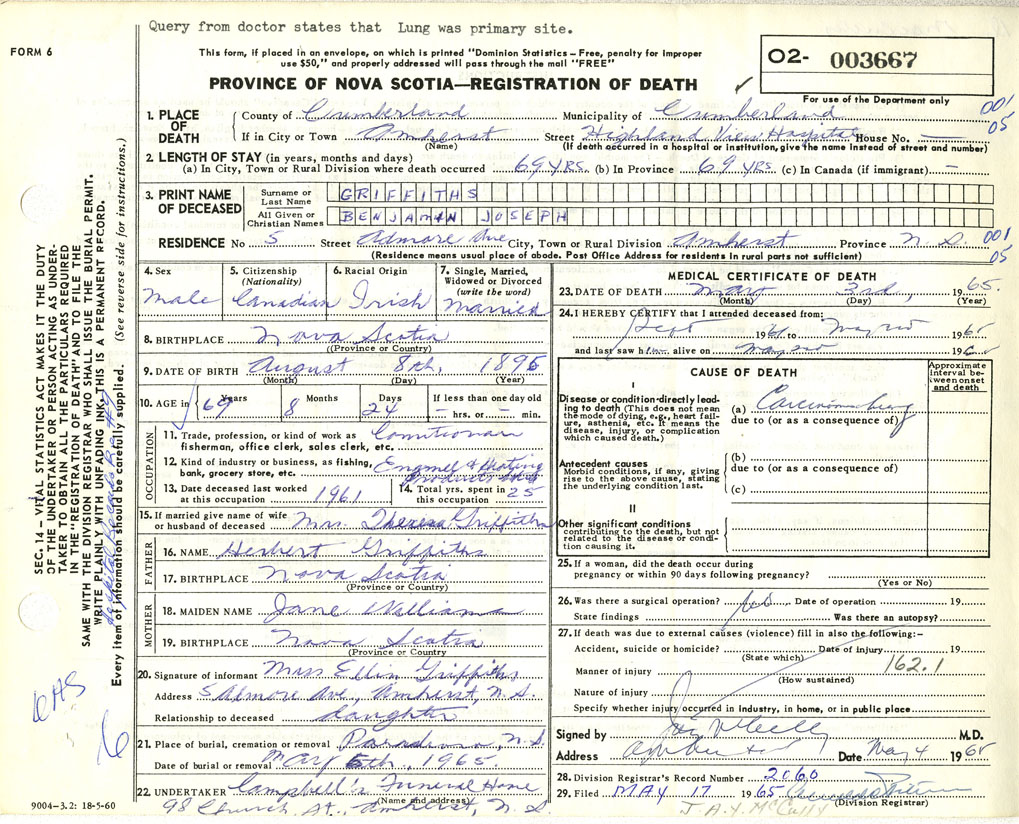 Query from doctor states that Lung was primary site.
FORM 6
This form, if placed in an envelope, on which is printed "Dominion Statistics - Free, penalty for improper
use $50," and properly addressed will pass through the mail "FREE"
O2- 003667
For use of the Department only
PROVINCE OF NOVA SCOTIA—REGISTRATION OF DEATH
001
05
1. PLACE OF DEATH
County of Cumberland Municipality of Cumberland
If in City or Town Amherst Street Highland View Hospital House No.
(Name) (If death occurred in a hospital or institution, give the name instead of street and number)
2. LENGTH OF STAY (in years, months and days)
(a) In City, Town or Rural Division where death occurred 69 yrs. (b) In Province 69 yrs. (c) In Canada (if immigrant) —
3. PRINT NAME OF DECEASED
Surname or Last Name GRIFFITHS
All Given or Christian Names BENJAMIN JOSEPH
RESIDENCE No 5 Street Admore Ave City, Town or Rural Division Amherst Province N.S. 001
05
(Residence means usual place of abode. Post Office Address for residents in rural parts not sufficient)
4. Sex
Male
5. Citizenship (Nationality)
Canadian
6. Racial Origin
Irish
7. Single, Married, Widowed or Divorced (write the word)
Married
8. BIRTHPLACE Nova Scotia
(Province or Country)
9. DATE OF BIRTH August 8th, 1895
(Month) (Day) (Year)
10. AGE in 69 Years 8 Months 24 Days If less than one day old
— hrs. or — min.
OCCUPATION
11. Trade, profession, or kind of work as
fisherman, office clerk, sales clerk, etc.
12. Kind of industry or business, as fishing, Enamel & Heating
bank, grocery store, etc. Products
13. Date deceased last worked
at this occupation 1961
14. Total yrs. spent in
this occupation 25
15. If married give name of wife
or husband of deceased Mrs. Theresa Griffiths
FATHER
16. NAME Herbert Griffiths
17. BIRTHPLACE Nova Scotia
(Province or Country)
MOTHER
18. MAIDEN NAME Jane Williams
19. BIRTHPLACE Nova Scotia
(Province or Country)
20. Signature of informant Miss Ellin Griffiths
Address 5 Admore Ave, Amherst, N.S.
Relationship to deceased daughter
21. Place of burial, cremation or removal N.S.
Date of burial or removal May 6th, 1965
22. UNDERTAKER Campbell's Funeral Home
(Name and address)
98 Church St., Amherst, N.S.
MEDICAL CERTIFICATE OF DEATH
23. DATE OF DEATH 3rd, 1965.
(Month) (Day) (Year)
24. I HEREBY CERTIFY that I attended deceased from:
Sept 19 to 1965
and last saw h alive on 196
CAUSE OF DEATH
Approximate interval between onset and death
I
Disease or condition directly leading to death (This does not mean
the mode of dying, e.g., heart failure, asthenia, etc. It means the
disease, injury, or complication
which caused death.)
(a)
due to (or as a consequence of)
Antecedent causes
Morbid conditions, if any, giving
rise to the above cause, stating
the underlying condition last.
(b)
due to (or as a consequence of)
(c)
II
Other significant conditions
contributing to the death, but not
related to the disease or condition causing it.
25. If a woman, did the death occur during
pregnancy or within 90 days following pregnancy?
(Yes or No)
26. Was there a surgical operation? Date of operation 19
State findings Was there an autopsy?
27. If death was due to external causes (violence) fill in also the following:—
Accident, suicide or homicide? Date of injury 19
(State which)
Manner of injury 162.1
(How sustained)
Nature of injury
Specify whether injury occurred in industry, in home, or in public place
Signed by M.D.
Address Date May 4 1965
28. Division Registrar's Record Number 2060
29. Filed MAY 17 1965
(Division Registrar)
J.A.Y. McCully
SEC. 14 – VITAL STATISTICS ACT MAKES IT THE DUTY
OF THE UNDERTAKER OR PERSON ACTING AS UNDERTAKER TO OBTAIN ALL THE PARTICULARS REQUIRED
IN THE "REGISTRATION OF DEATH" AND TO FILE THE
SAME WITH THE DIVISION REGISTRAR WHO SHALL ISSUE THE BURIAL PERMIT.
WRITE PLAINLY WITH UNFADING INK. THIS IS A PERMANENT RECORD.
Every item of information should be carefully supplied. (See reverse side for instructions.)
6
9004-3.2: 18-5-60